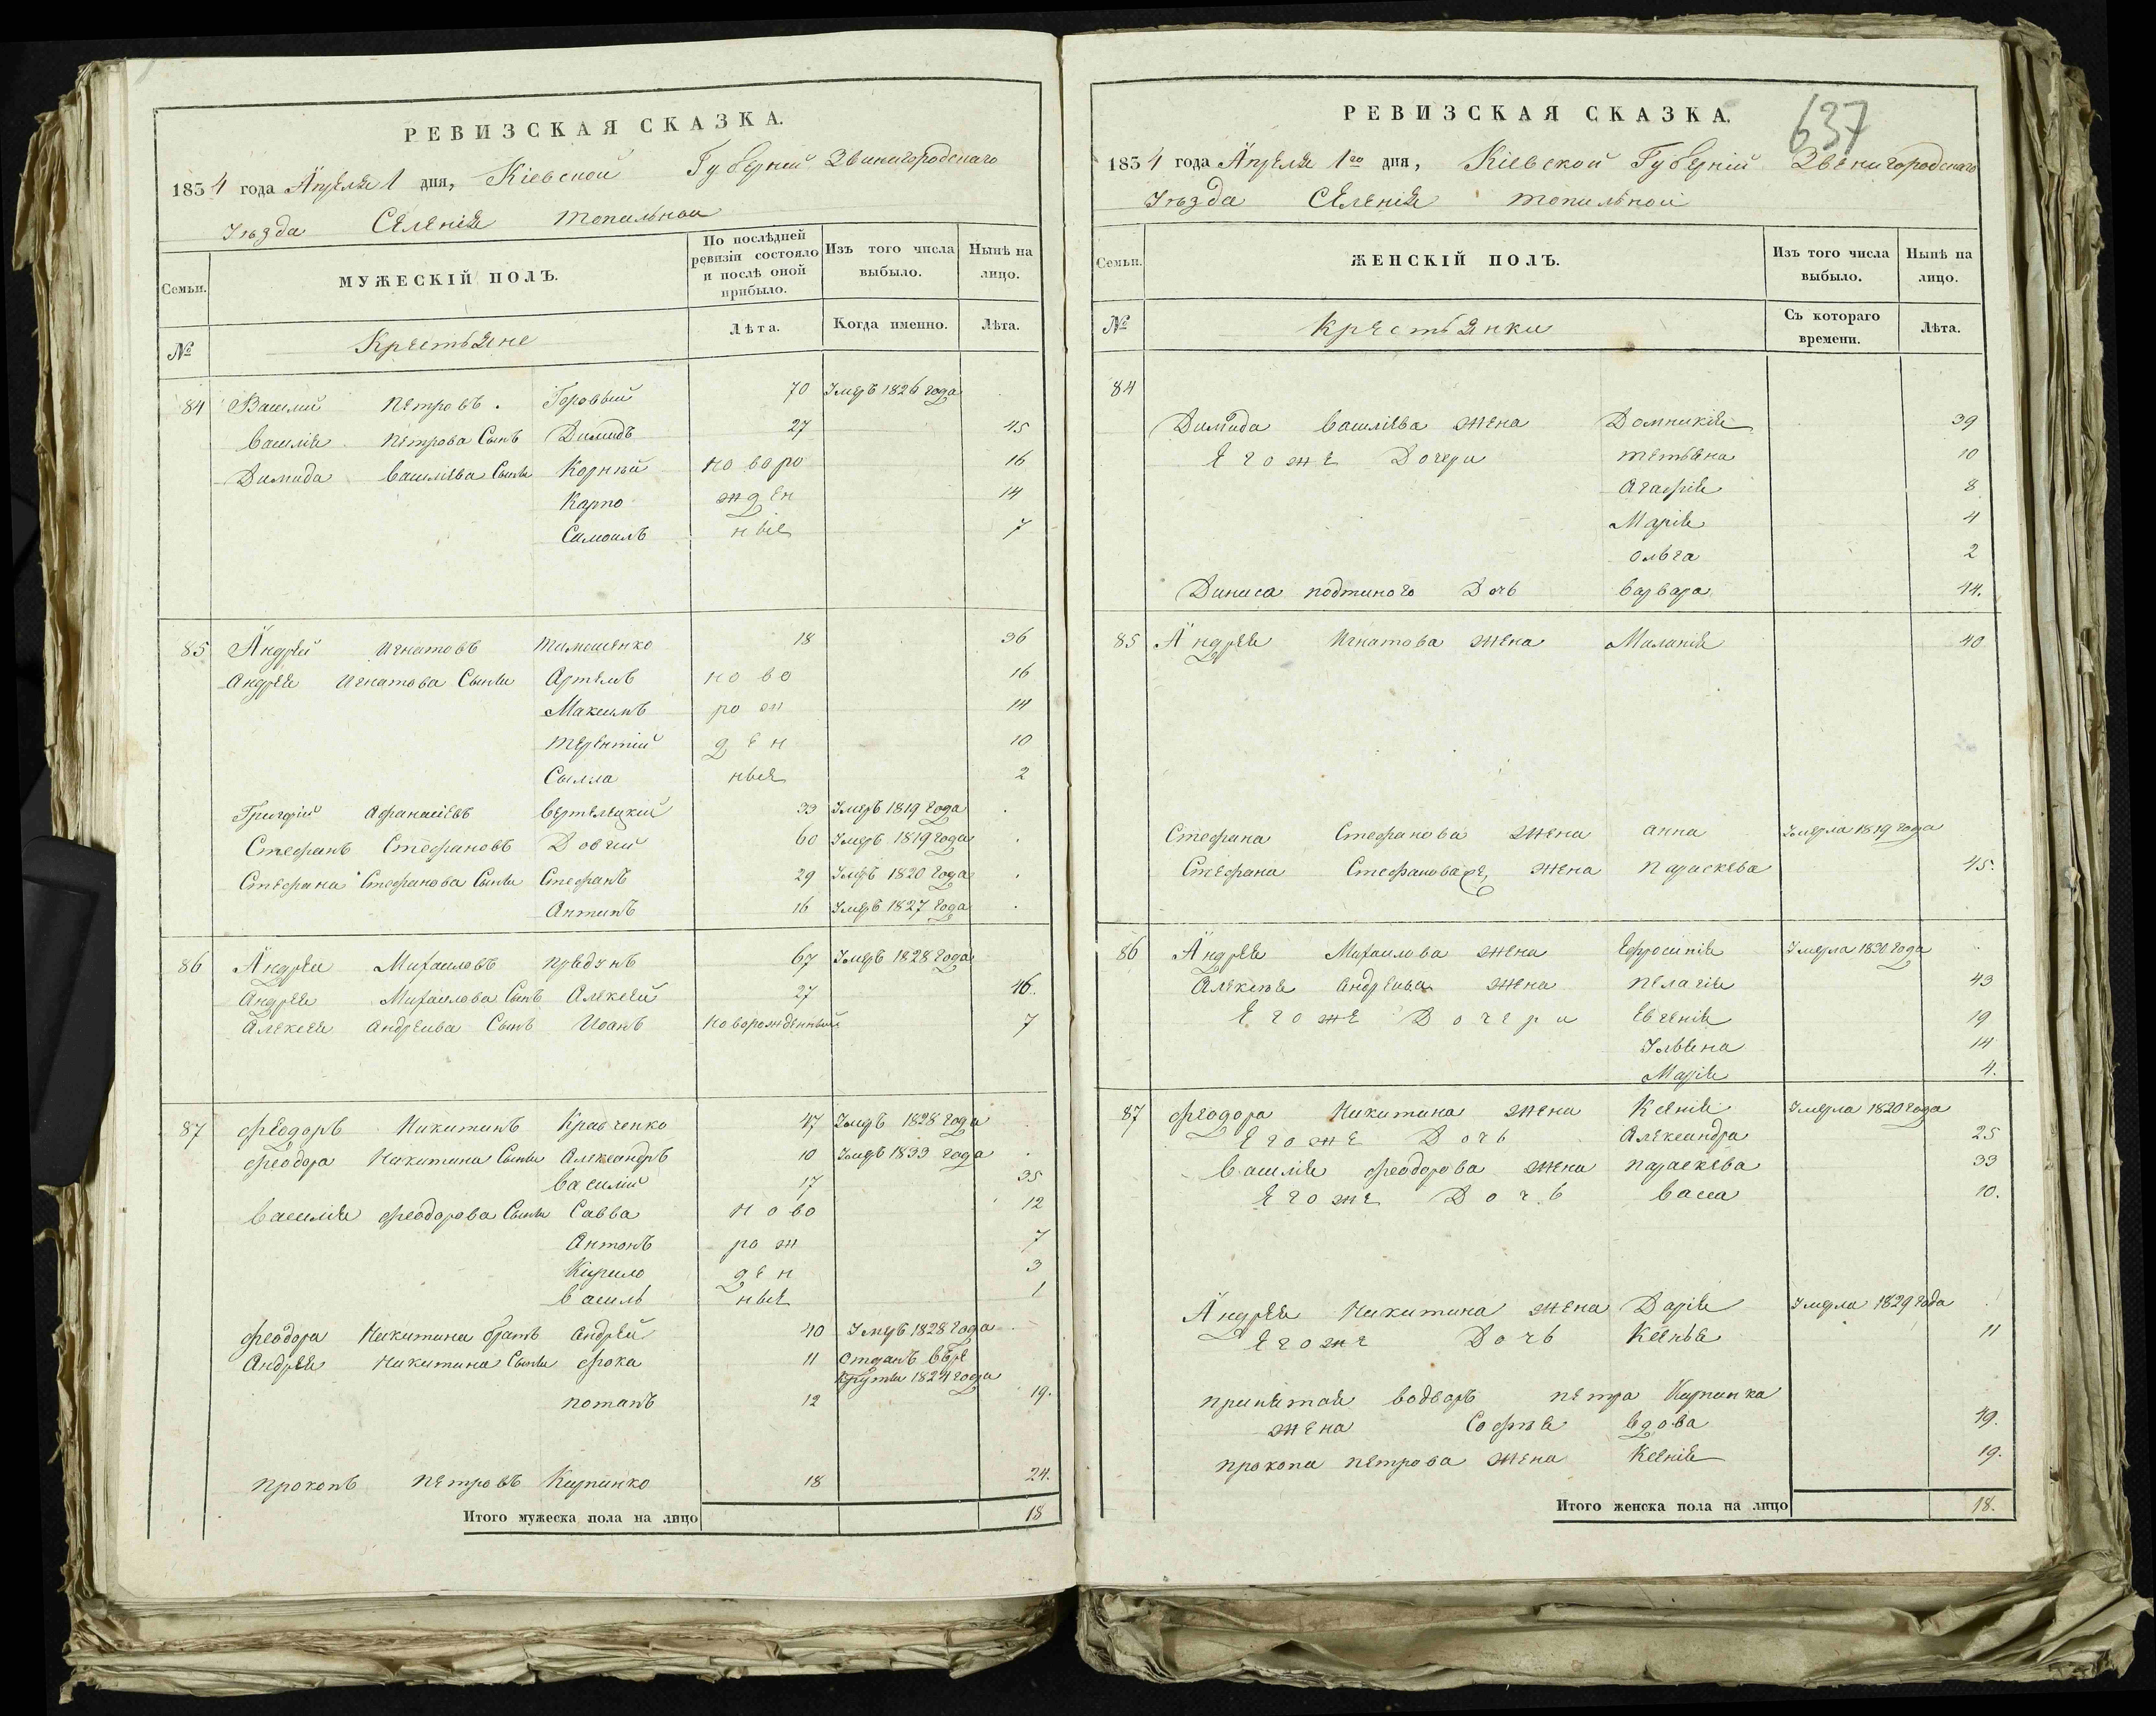 РЕВИЗСКАЯ СКАЗКА.
1834 года Апреля 1 дня, Кіевской Губерніи Звинигородскаго
Уѣзда Селенія Топильнои
Семьи. МУЖЕСКІЙ ПОЛЪ. По послѣдней ревизіи состояло и послѣ оной прибыло. Изъ того числа выбыло. Нынѣ на лицо.
№ Крестьяне Лѣта. Когда именно. Лѣта.
84 Василий Петровъ. Горовый 70 Умеръ 1826 года
Василія Петрова Сынъ Димидъ 27 45
Димида Василіева Сыны Корный новоро 16
Карпо жден 14
Самоилъ ные 7
85 Андрей Игнатовъ Тимошенко 18 36
Андрея Игнатова Сыны Артемъ ново 16
Максимъ рож 14
Терентий ден 10
Сылла ные 2
Григорій Афанасіевъ Вертелецкій 33 Умеръ 1819 года
Стефанъ Стефановъ Довгий 60 Умеръ 1819 года
Стефана Стефанова Сыны Стефанъ 29 Умръ 1820 года
Антипъ 16 Умеръ 1827 года
86 Андрей Михаиловъ Предунъ 67 Умеръ 1828 года
Андрея Михаилова Сынъ Алексей 27 46.
Алексея Андреива Сынъ Иоанъ Новорожденный 7
87 Феодоръ Никитинъ Кравченко 47 Умеръ 1828 года
Феодора Никитина Сыны Александръ 10 Умеръ 1833 года
Василій 17 35
Василия Феодорова Сыны Савва ново 12
Антонъ рож 7
Кирило ден 3
Василь ные 1
Феодора Никитина братъ Андрей 40 Умеръ 1828 года
Андрея Никитина Сыны Фока 11 Отданъ въ ре
круты 1824 года
Потапъ 12 19.
Прокопъ Петровъ Кирпинко 18 24.
Итого мужеска пола на лицо 18
637
РЕВИЗСКАЯ СКАЗКА.
1834 года Апреля 1го дня, Кіевской Губерніи Звенигородскаго
Уѣзда Селенія Топильной
Семьи. ЖЕНСКІЙ ПОЛЪ. Изъ того числа выбыло. Нынѣ на лицо.
№ Крестьянки Съ котораго времени. Лѣта.
84
Димида Василіева жена Домникия 39
Егоже Дочери Тетьяна 10
Агафія 8
Марія 4
Ольга 2
Диниса Подтиного Дочь Варвара 14.
85 Андрея Игнатова жена Маланія 40
Стефана Стефанова жена Анна Умерла 1819 года
Стефана Стефановаже жена Параскева 45.
86 Андрея Михаилова жена Ефросинія Умерла 1830 года
Алексея Андреива жена Пелагія 43
Егоже Дочери Евгенія 19
Ульяна 14
Марія 4.
87 Феодора Никитина жена Ксенія Умерла 1820 года
Егоже Дочь Александра 25
Василія Феодорова жена Параскева 33
Егоже Дочь Васса 10.
Андрея Никитина жена Дарія Умерла 1829 года
Егоже Дочь Ксенья 11
Принятая водворъ Петра Кирпинка
жена Софія вдова 49.
Прокопа Петрова жена Ксенія 19.
Итого женска пола на лицо 18.